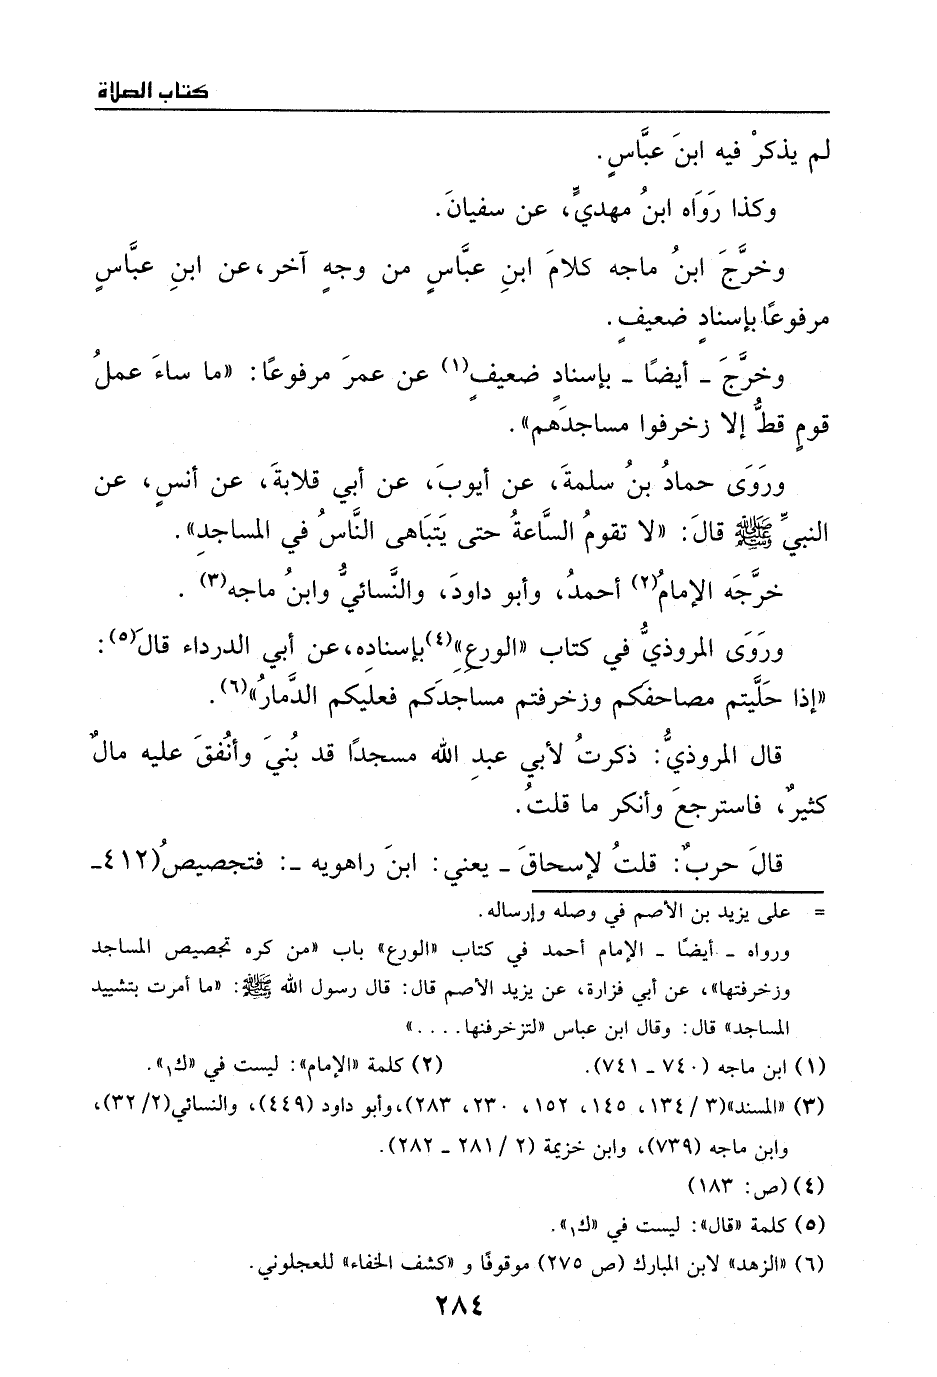 كتاب الصلاة
لم يذكرْ فيه ابنَ عبَّاسٍ.
وكذا رَوَاه ابنُ مهديٍّ، عن سفيانَ.
وخرَّجَ ابنُ ماجه كلامَ ابنِ عبَّاسٍ من وجهٍ آخر،عن ابنِ عبَّاسٍ
مرفوعًا بإسنادٍ ضعيفٍ.
وخرَّجَ ـ أيضًا ـ بإسنادٍ ضعيفٍ(١) عن عمرَ مرفوعًا: «ما ساءَ عملُ
قومٍ قطُّ إلا زخرفوا مساجدَهم».
ورَوَى حمادُ بنُ سلمةَ، عن أيوبَ، عن أبي قلابةَ، عن أنسٍ، عن
النبيِّ ﷺ قالَ: «لا تقومُ السَّاعةُ حتى يَتبَاهى النَّاسُ في المساجدِ».
خرَّجَه الإمامُ(٢) أحمدُ، وأبو داودَ، والنَّسائيُّ وابنُ ماجه(٣) .
ورَوَى المروذيُّ في كتاب «الورعِ»(٤)بإسنادِه،عن أبي الدرداء قالَ(٥):
«إذا حَلَّيتم مصاحفَكم وزخرفتم مساجدَكم فعليكم الدَّمارُ»(٦).
قال المروذيُّ: ذكرتُ لأبي عبدِ الله مسجدًا قد بُنيَ وأنُفقَ عليه مالٌ
كثيرٌ، فاسترجعَ وأنكر ما قلتُ.
قالَ حربٌ: قلتُ لإسحاقَ ـ يعني: ابنَ راهويه ـ: فتجصيصُ(٤١٢ـ
= على يزيد بن الأصم في وصله وإرساله.
ورواه ـ أيضًا ـ الإمام أحمد في كتاب «الورع» باب «من كره تجصيص المساجد
وزخرفتها»، عن أبي فزارة، عن يزيد الأصم قال: قال رسول الله ﷺ: «ما أمرت بتشييد
المساجد» قال: وقال ابن عباس «لتزخرفنها....»
(١) ابن ماجه (٧٤٠ ـ ٧٤١). (٢) كلمة «الإمام»: ليست في «ك١».
(٣) «المسند»(٣/ ١٣٤، ١٤٥، ١٥٢، ٢٣٠، ٢٨٣)،وأبو داود (٤٤٩)، والنسائي(٢/ ٣٢)،
وابن ماجه (٧٣٩)، وابن خزيمة (٢/ ٢٨١ ـ ٢٨٢).
(٤) (ص: ١٨٣)
(٥) كلمة «قال»: ليست في «ك١».
(٦) «الزهد» لابن المبارك (ص ٢٧٥) موقوفًا و «كشف الخفاء» للعجلوني.
٢٨٤